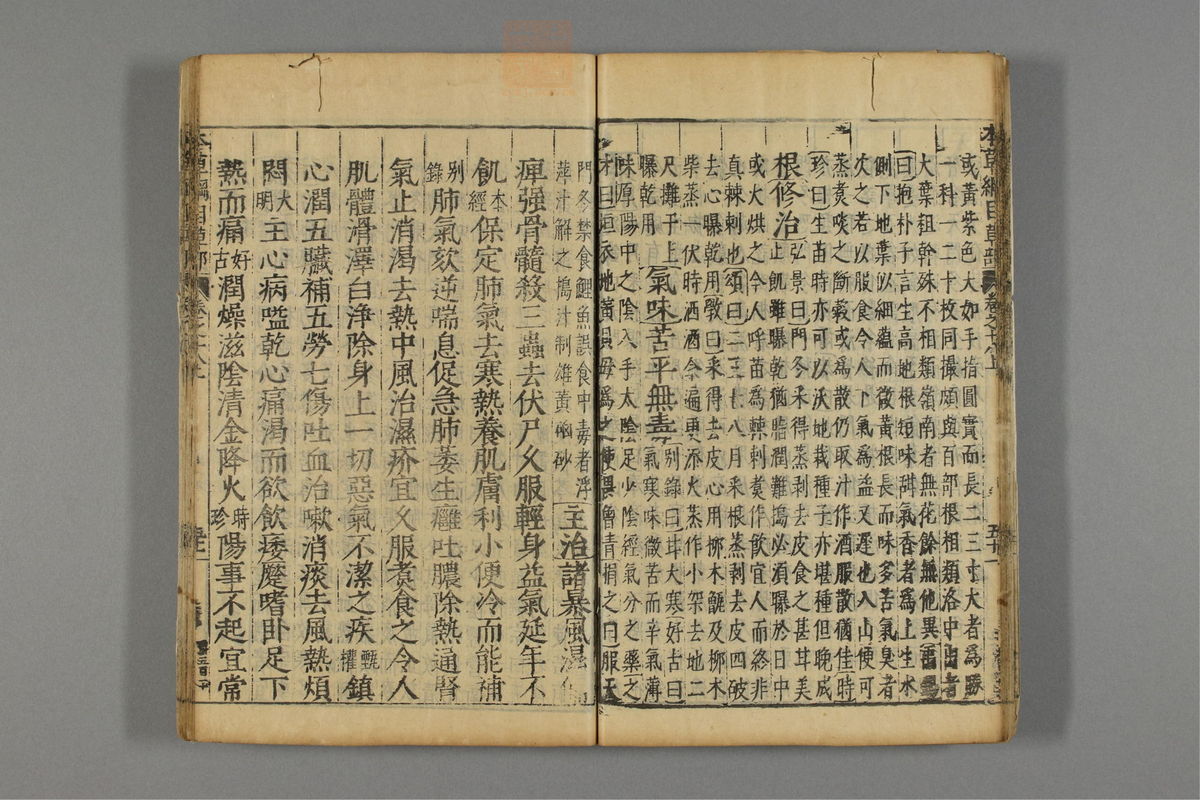 或黃紫色大如手指圓實而長二三寸大者為勝
一科一二十枚同撮頗與百部根相類洛中出者
大葉粗幹殊不相類嶺南者無花餘無他異
曰抱朴子言生高地根短味甜氣香者為上生水
側下地葉似細蘊而微黃根長而味多苦氣臭者
次之若以服食令人下氣為益又遲也入山便可
蒸煑啖之斷穀或為散仍取汁作酒服散猶佳時
珍曰生苗時亦可以沃地栽種子亦堪種但晚成
根修治弘景曰門冬采得蒸剥去皮食之甚甘美
止飢雖曝乾猶脂潤難搗必須曝於日中
或火烘之今人呼苗為棘刺煑作飲宜人而終非
真棘刺也頌曰二三七八月采根蒸剥去皮四破
去心曝乾用斆曰采得去皮心用柳木甑及柳木
柴蒸一伏時洒酒令遍更添火蒸作小架去地二
尺攤于上
曝乾用氣味苦平無毒别錄曰甘大寒好古曰
氣寒味微苦而辛氣薄
味厚陽中之陰入手太陰足少陰經氣分之藥之
才曰垣衣地黃貝母為之使畏曾青損之曰服天
門冬禁食鯉魚誤食中毒者浮
萍汁解之搗汁制雄黃硇砂主治諸暴風濕
痺强骨髓殺三蟲去伏尸久服輕身益氣延年不
飢本經保定肺氣去寒熱養肌膚利小便冷而能補
别錄肺氣欬逆喘息促急肺萎生癰吐膿除熱通腎
氣止消渴去熱中風治濕疥宜久服煑食之令人
肌體滑澤白淨除身上一切惡氣不潔之疾甄權鎮
心潤五臟補五勞七傷吐血治嗽消痰去風熱煩
悶大明主心病嗌乾心痛渴而欲飲痿蹷嗜卧足下
熱而痛好古潤燥滋陰清金降火時珍陽事不起宜常